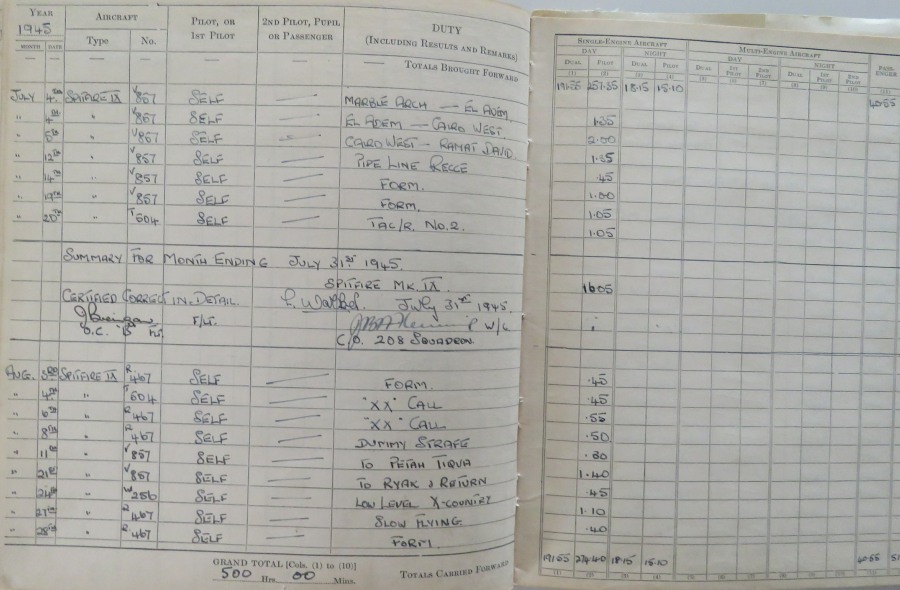 YEAR 1945 AIRCRAFT PILOT, OR 1ST PILOT 2ND PILOT, PUPIL OR PASSENGER DUTY (INCLUDING RESULTS AND REMARKS)
MONTH DATE Type No.
— — — — — — TOTALS BROUGHT FORWARD
JULY 4TH SPITFIRE IX V 857 SELF — MARBLE ARCH — EL ADEM.
" 4TH " V 857 SELF — EL ADEM — CAIRO WEST.
" 5TH " V 857 SELF — CAIRO WEST — RAMAT DAVID.
" 12TH " V 857 SELF — PIPE LINE RECCE
" 14TH " V 857 SELF — FORM.
" 19TH " V 857 SELF — FORM.
" 20TH " T 504 SELF — TAC/R. NO. 2.
SUMMARY FOR MONTH ENDING JULY 31ST 1945.
SPITFIRE MK. IX.
CERTIFIED CORRECT IN DETAIL. JULY 31ST 1945.
F/LT. W/C.
O.C. "B" FLT. C/O. 208 SQUADRON
AUG. 3RD SPITFIRE IX R 467 SELF — FORM.
" 4TH " T 504 SELF — "XX" CALL
" 6TH " R 467 SELF — "XX" CALL
" 8TH " R 467 SELF — DUMMY STRAFE
" 11TH " V 857 SELF — TO PETAH TIQVA
" 21ST " V 857 SELF — TO RYAK & RETURN
" 24TH " W 256 SELF — LOW LEVEL X-COUNTRY
" 27TH " R 467 SELF — SLOW FLYING
" 28TH " R 467 SELF — FORM.
GRAND TOTAL [Cols. (1) to (10)]
500 Hrs. 00 Mins. TOTALS CARRIED FORWARD
SINGLE-ENGINE AIRCRAFT MULTI-ENGINE AIRCRAFT
DAY NIGHT DAY NIGHT PASS-ENGER
DUAL PILOT DUAL PILOT DUAL 1ST PILOT 2ND PILOT DUAL 1ST PILOT 2ND PILOT
(1) (2) (3) (4) (5) (6) (7) (8) (9) (10)
191.55 257.35 18.15 15.10 40.55
1.35
2.00
1.35
.45
1.00
1.05
1.05
16.05
.45
.45
.55
.50
.30
1.40
.45
1.10
.40
191.55 274.40 18.15 15.10 40.55
(1) (2) (3) (4)